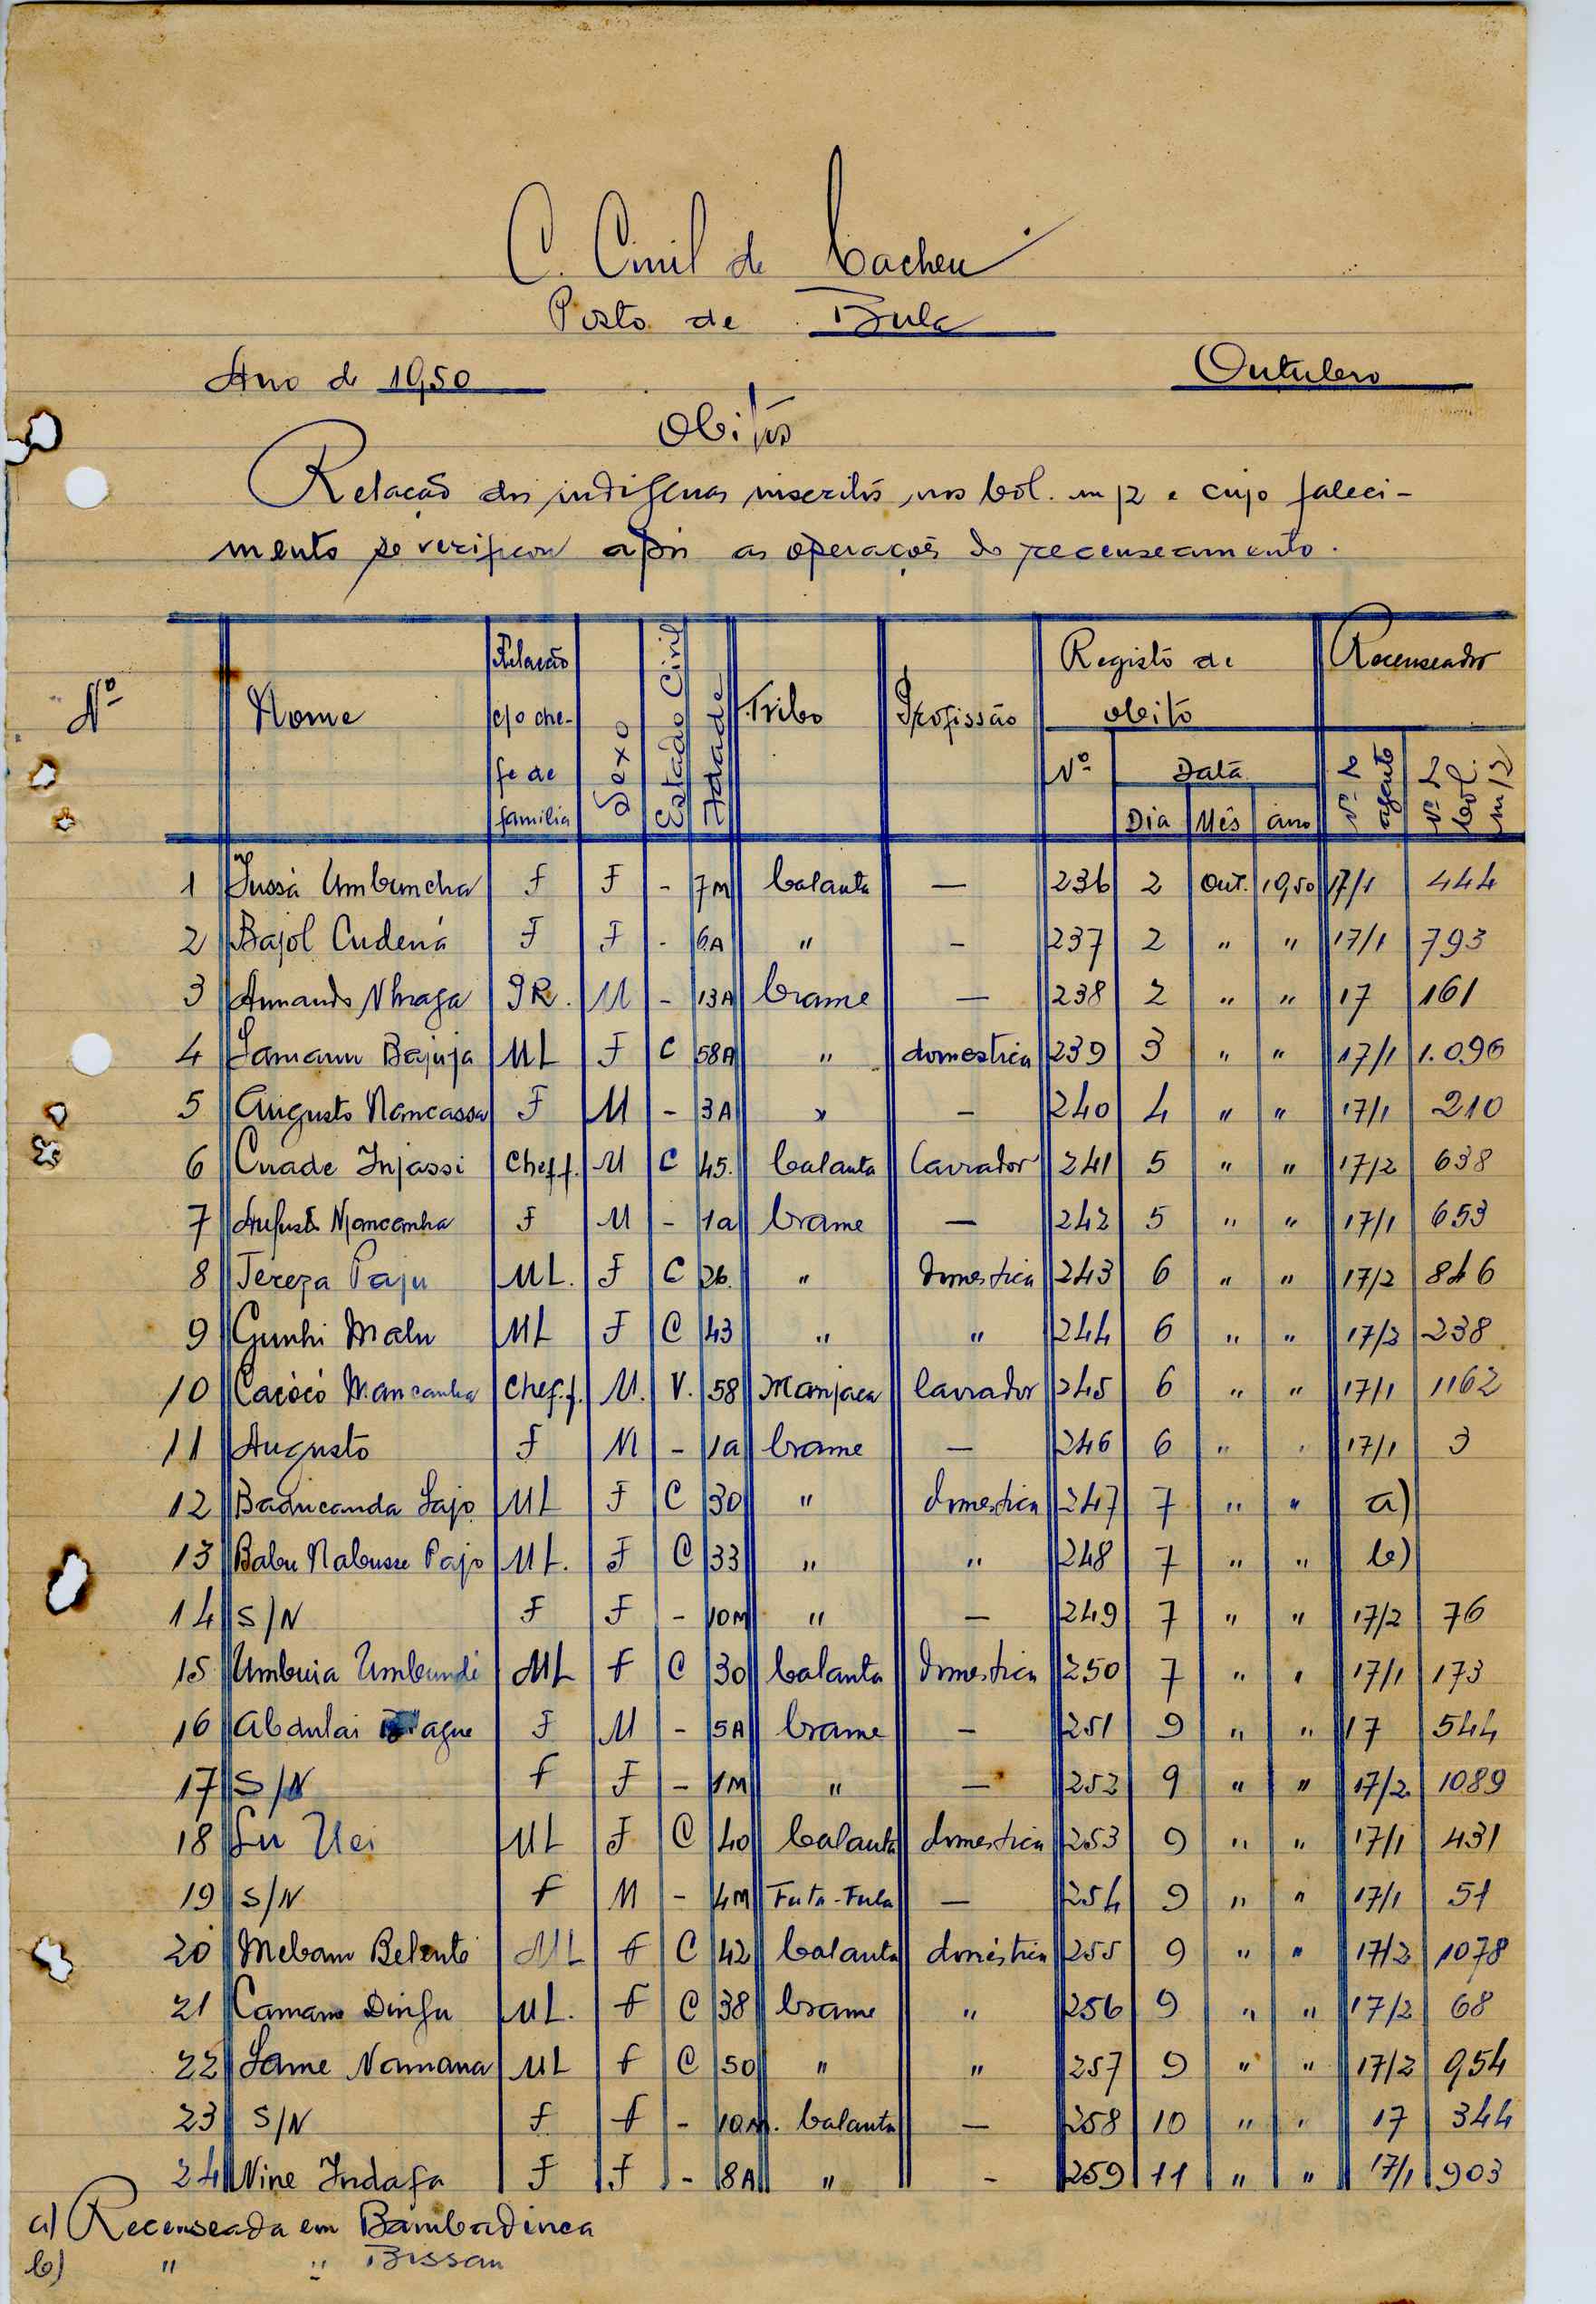 C. Civil de Cacheu
Posto de Bula
Ano de 1950 Outubro
Obitos
Relação dos indigenas inscritos nos bol. m/2 e cujo faleci-
mento se verificou após as operações do recenseamento.
Nº Nome Relação c/o chefe de familia Sexo Estado Civil Idade Tribo Profissão Registo de obito Recenseador
Nº Data Nº do agente Nº do bol. m/2
Dia Mês ano
1 Jussà Umbuncha F F - 7M balanta — 236 2 Out. 1950 17/1 444
2 Bajol Cudená F F - 6A " - 237 2 " " 17/1 793
3 Armando Nhaga IR. M - 13A brame — 238 2 " " 17 161
4 Samann Bajuja ML F C 58A " domestica 239 3 " " 17/1 1.096
5 Augusto Nancassa F M - 3A " - 240 4 " " 17/1 210
6 Cuade Injassi Chef.f. M C 45. balanta lavrador 241 5 " " 17/2 638
7 Augusto Mancanha F M - 1a brame — 242 5 " " 17/1 653
8 Tereza Paju ML. F C 26. " domestica 243 6 " " 17/2 846
9 Gunhi Malu ML F C 43 " " 244 6 " " 17/2 238
10 Cacócó Mancanha Chef.f. M. V. 58 Manjaca lavrador 245 6 " " 17/1 1162
11 Augusto F M - 1a brame — 246 6 " " 17/1 3
12 Baducanda Sajo ML F C 30 " domestica 247 7 " " a)
13 Babu Nabusse Pajo ML. F C 33 " " 248 7 " " b)
14 S/N F F - 10M " — 249 7 " " 17/2 76
15 Umbuia Umbundé ML F C 30 balanta domestica 250 7 " " 17/1 173
16 Abdulai F M - 5A brame — 251 9 " " 17 544
17 S/N F F - 1M " — 252 9 " " 17/2. 1089
18 Su Uei ML F C 40 balanta domestica 253 9 " " 17/1 431
19 S/N F M - 4M Futa-Fula — 254 9 " " 17/1 51
20 Mebam Belento ML F C 42 balanta doméstica 255 9 " " 17/2 1078
21 Camam Dingu ML. F C 38 brame " 256 9 " " 17/2 68
22 Same Namana ML F C 50 " " 257 9 " " 17/2 954
23 S/N F F - 10M. balanta — 258 10 " " 17 344
24 Nine Indafa F F - 8A " - 259 11 " " 17/1 903
a) Recenseada em Bambadinca
b) " " Bissau